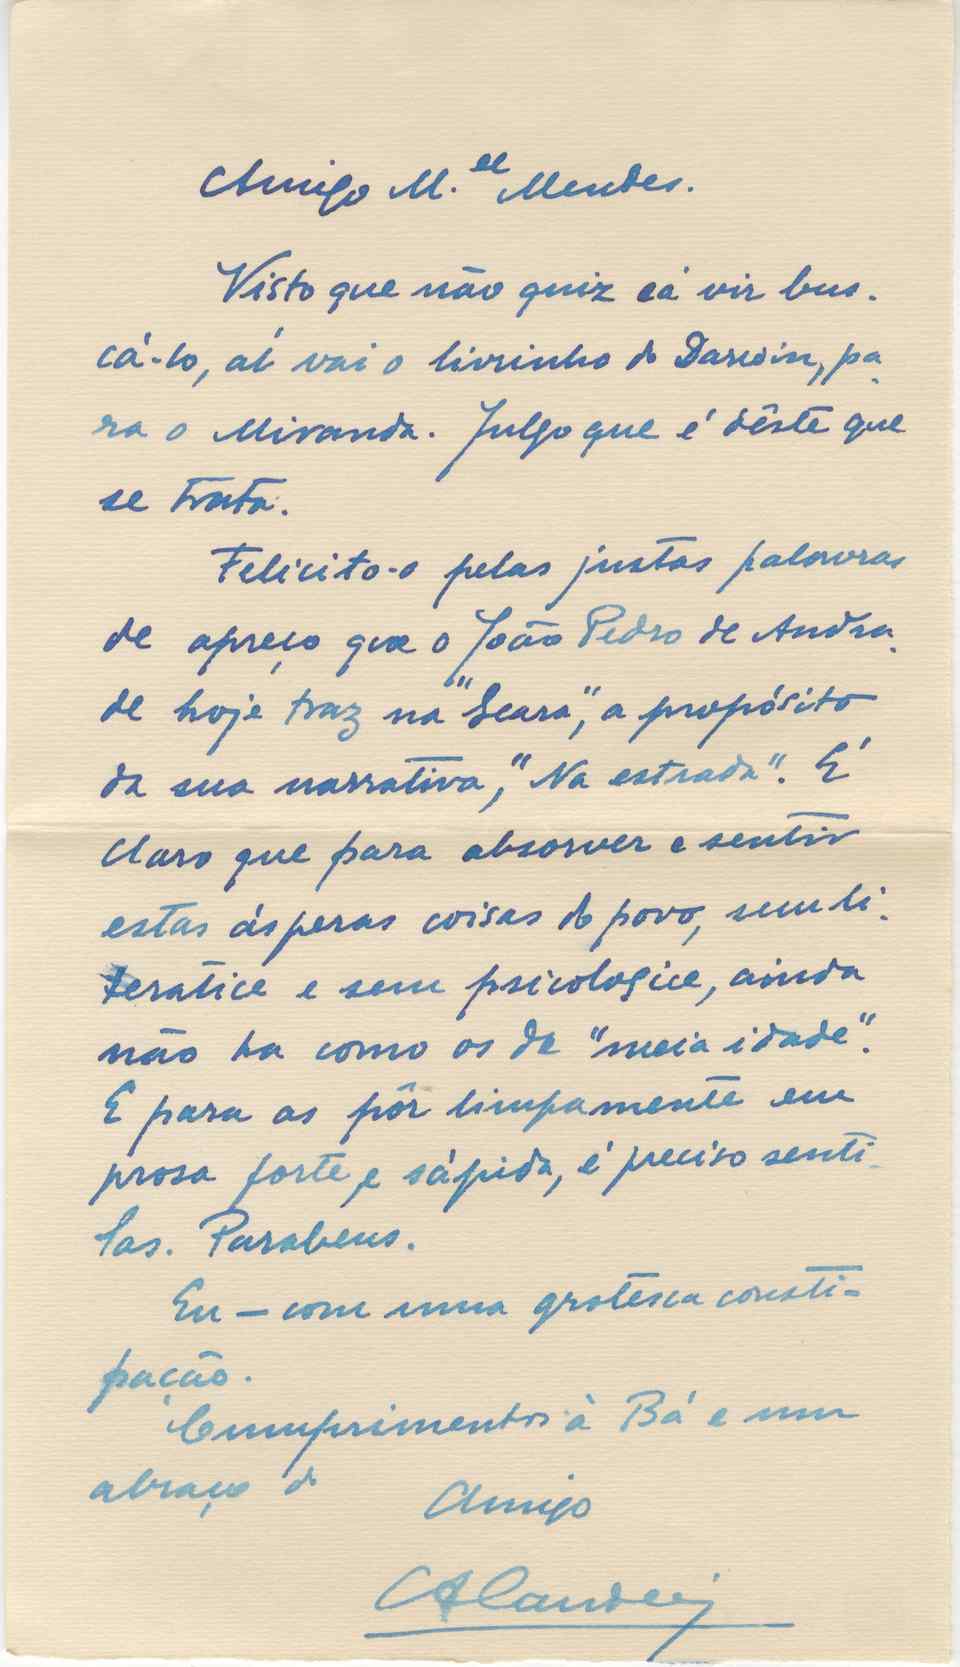 Amigo M.el Mendes.
Visto que não quiz cá vir bus-
cá-lo, aí vai o livrinho do Darwin, pa-
ra o Miranda. Julgo que é dêste que
se trata.
Felicito-o pelas justas palavras
de apreço que o João Pedro de Andra-
de hoje traz na "Seara", a propósito
da sua narrativa, "Na estrada". É
claro que para absorver e sentir
estas ásperas coisas do povo, sem li-
teratice e sem psicologice, ainda
não ha como os da "meia idade".
E para as pôr limpamente em
prosa forte e sápida, é preciso senti-
las. Parabens.
Eu — com uma grotesca consti-
pação.
Cumprimentos à Bá e um
abraço do
Amigo